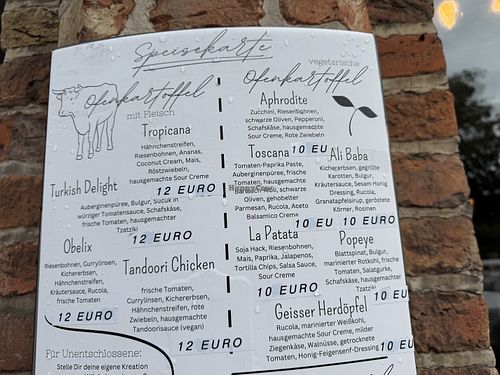 Speisekarte
Ofenkartoffel
mit Fleisch
Tropicana
Hähnchenstreifen,
Riesenbohnen, Ananas,
Coconut Cream, Mais,
Röstzwiebeln,
hausgemachte Sour Creme
12 EURO
Turkish Delight
Auberginenpüree, Bulgur, Sucuk in
würziger Tomatensauce, Schafskäse,
frische Tomaten, hausgemachter
Tzatziki
12 EURO
Obelix
Riesenbohnen, Currylinsen,
Kichererbsen,
Hähnchenstreifen,
Kräutersauce, Rucola,
frische Tomaten
12 EURO
Tandoori Chicken
frische Tomaten,
Currylinsen, Kichererbsen,
Hähnchenstreifen, rote
Zwiebeln, hausgemachte
Tandoorisauce (vegan)
12 EURO
Für Unentschlossene:
Stelle Dir deine eigene Kreation
vegetarische
Ofenkartoffel
Aphrodite
Zucchini, Riesenbohnen,
schwarze Oliven, Pepperoni,
Schafskäse, hausgemachte
Sour Creme, Rote Zwiebeln
10 EU
Toscana
Tomaten-Paprika Paste,
Auberginenpüree, frische
Tomaten, hausgemachte
schwarze
Oliven, gehobelter
Parmesan, Rucola, Aceto
Balsamico Creme
10 EU
Ali Baba
Kichererbsen, gegrillte
Karotten, Bulgur,
Kräutersauce, Sesam Honig
Dressing, Rucola,
Granatapfelsirup, geröstete
Körner, Rosinen
10 EURO
La Patata
Soja Hack, Riesenbohnen,
Mais, Paprika, Jalapenos,
Tortilla Chips, Salsa Sauce,
Sour Creme
10 EURO
Popeye
Blattspinat, Bulgur,
marinierter Rotkohl, frische
Tomaten, Salatgurke,
Schafskäse, hausgemachter
Tzatziki
10 EU
Geisser Herdöpfel
Rucola, marinierter Weißkohl,
hausgemachte Sour Creme, milder
Ziegenkäse, Walnüsse, getrocknete
Tomaten, Honig-Feigensenf-Dressing
10 EU